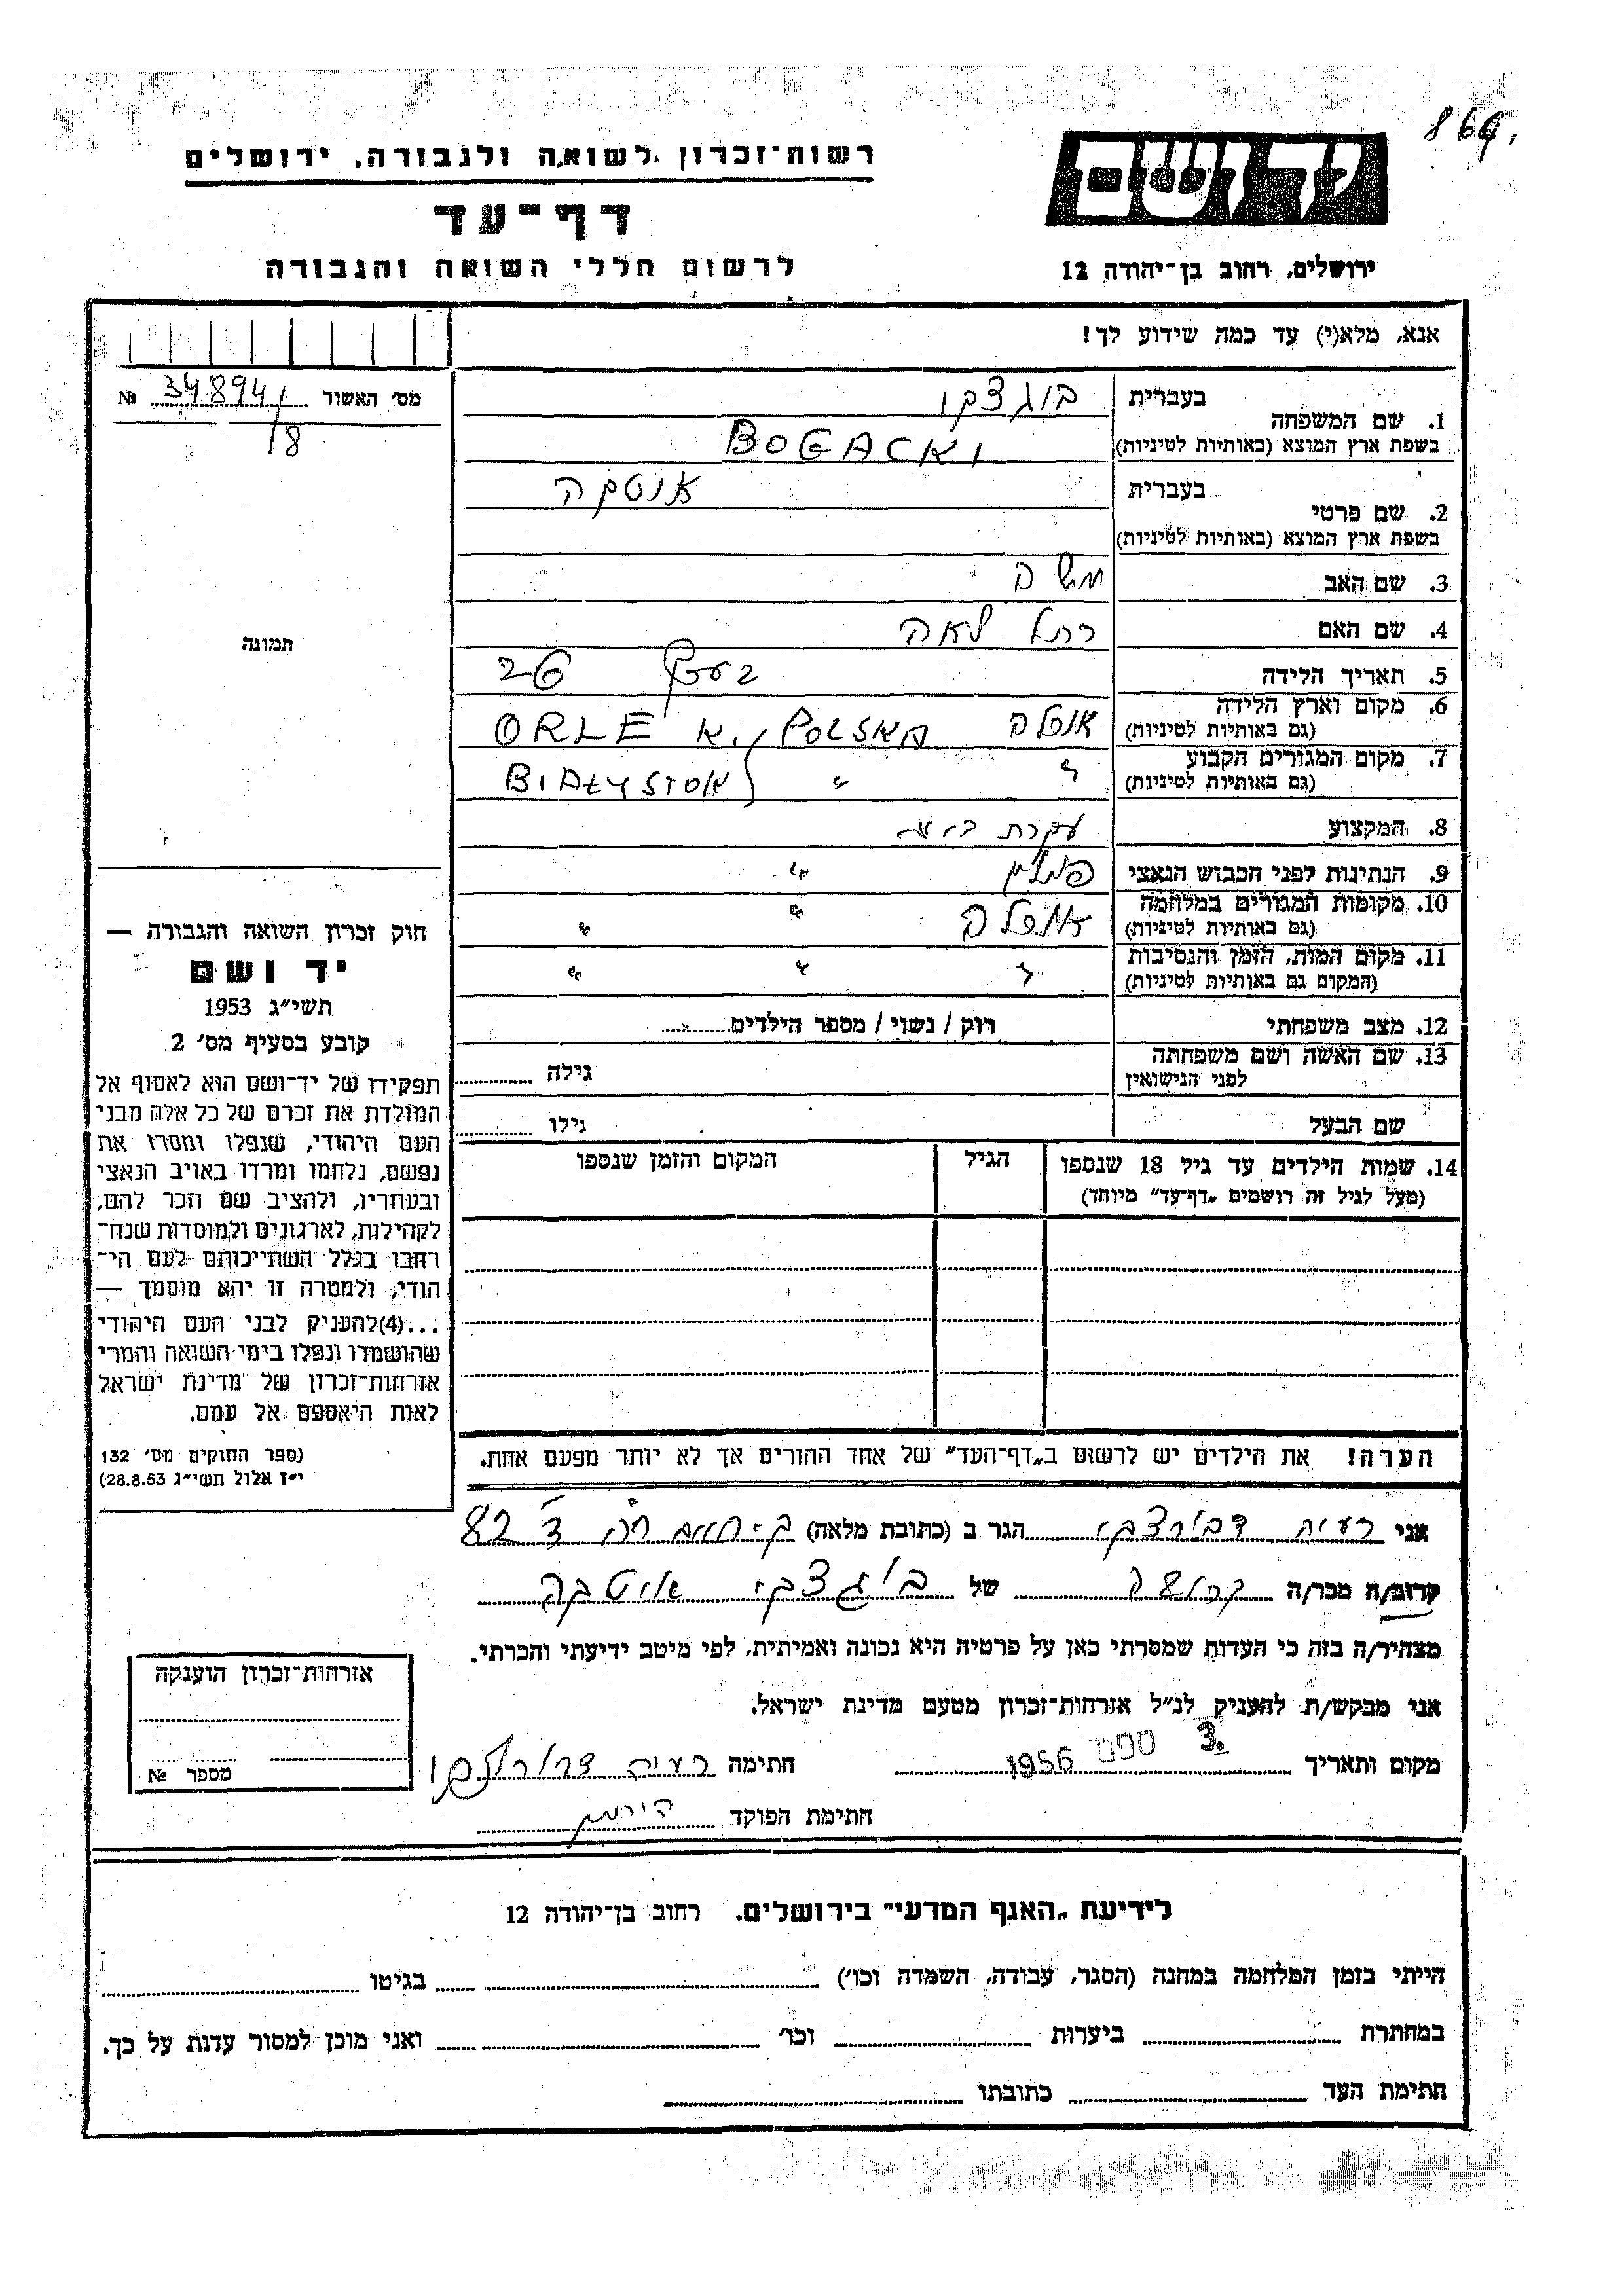 869.
רשות־זכרון לשואה ולגבורה, ירושלים
דף־עד
לרשום חללי השואה והגבורה
יד ושם
ירושלים, רחוב בן־יהודה 12
אנא, מלא(י) עד כמה שידוע לך!
מס׳ האשור 34894/ №
18
תמונה
1. שם המשפחה
בעברית בוגצקי
בשפת ארץ המוצא (באותיות לטיניות) BOGACKI
2. שם פרטי
בעברית
בשפת ארץ המוצא (באותיות לטיניות)
3. שם האב משה
4. שם האם רחל לאה
5. תאריך הלידה בערך 26
6. מקום וארץ הלידה
(גם באותיות לטיניות) אורלה ORLE K. POLSKA
7. מקום המגורים הקבוע
(גם באותיות לטיניות) " " BIAŁYSTOK
8. המקצוע עקרת בית
9. הנתינות לפני הכבוש הנאצי פולין "
10. מקומות המגורים במלחמה
(גם באותיות לטיניות) אורלה " "
11. מקום המות, הזמן והנסיבות
(המקום גם באותיות לטיניות) " " "
12. מצב משפחתי רוק / נשוי / מספר הילדים
13. שם האשה ושם משפחתה
לפני הנישואין גילה
שם הבעל גילו
14. שמות הילדים עד גיל 18 שנספו הגיל המקום והזמן שנספו
(מעל לגיל זה רושמים „דף־עד" מיוחד)
הערה! את הילדים יש לרשום ב„דף־העד" של אחד ההורים אך לא יותר מפעם אחת.
חוק זכרון השואה והגבורה —
יד ושם
תשי״ג 1953
קובע בסעיף מס׳ 2
תפקידו של יד־ושם הוא לאסוף אל
המולדת את זכרם של כל אלה מבני
העם היהודי, שנפלו ומסרו את
נפשם, נלחמו ומרדו באויב הנאצי
ובעוזריו, ולהציב שם וזכר להם,
לקהילות, לארגונים ולמוסדות שנח־
רבו בגלל השתייכותם לעם הי־
הודי, ולמטרה זו יהא מוסמך —
...(4)להעניק לבני העם היהודי
שהושמדו ונפלו בימי השואה והמרי
אזרחות־זכרון של מדינת ישראל
לאות היאספם אל עמם.
(ספר החוקים מס׳ 132
י״ז אלול תשי״ג 28.8.53)
אני רעיה דבורצקי הגר ב (כתובת מלאה) 82
קרוב/ה מכר/ה של בוגצקי
מצהיר/ה בזה כי העדות שמסרתי כאן על פרטיה היא נכונה ואמיתית, לפי מיטב ידיעתי והכרתי.
אני מבקש/ת להעניק לנ״ל אזרחות־זכרון מטעם מדינת ישראל.
מקום ותאריך 3. ספט 1956 חתימה רעיה דבורצקי
חתימת הפוקד
אזרחות־זכרון הוענקה
מספר №
לידיעת „האגף המדעי" בירושלים. רחוב בן־יהודה 12
הייתי בזמן המלחמה במחנה (הסגר, עבודה, השמדה וכו׳) בגיטו
במחתרת ביערות וכו׳ ואני מוכן למסור עדות על כך.
חתימת העד כתובתו